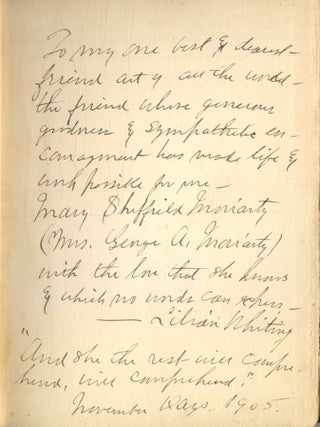 To my one best & dearest
friend out of all the world -
the friend whose generous
goodness & sympathetic en-
couragement has made life &
work possible for me -
Mary Sheffield Moriarty
(Mrs. George A. Moriarty)
with the love that she knows
& which no words can express -
—— Lilian Whiting
"And she the rest will compre-
hend, will comprehend."
November Days, 1905.